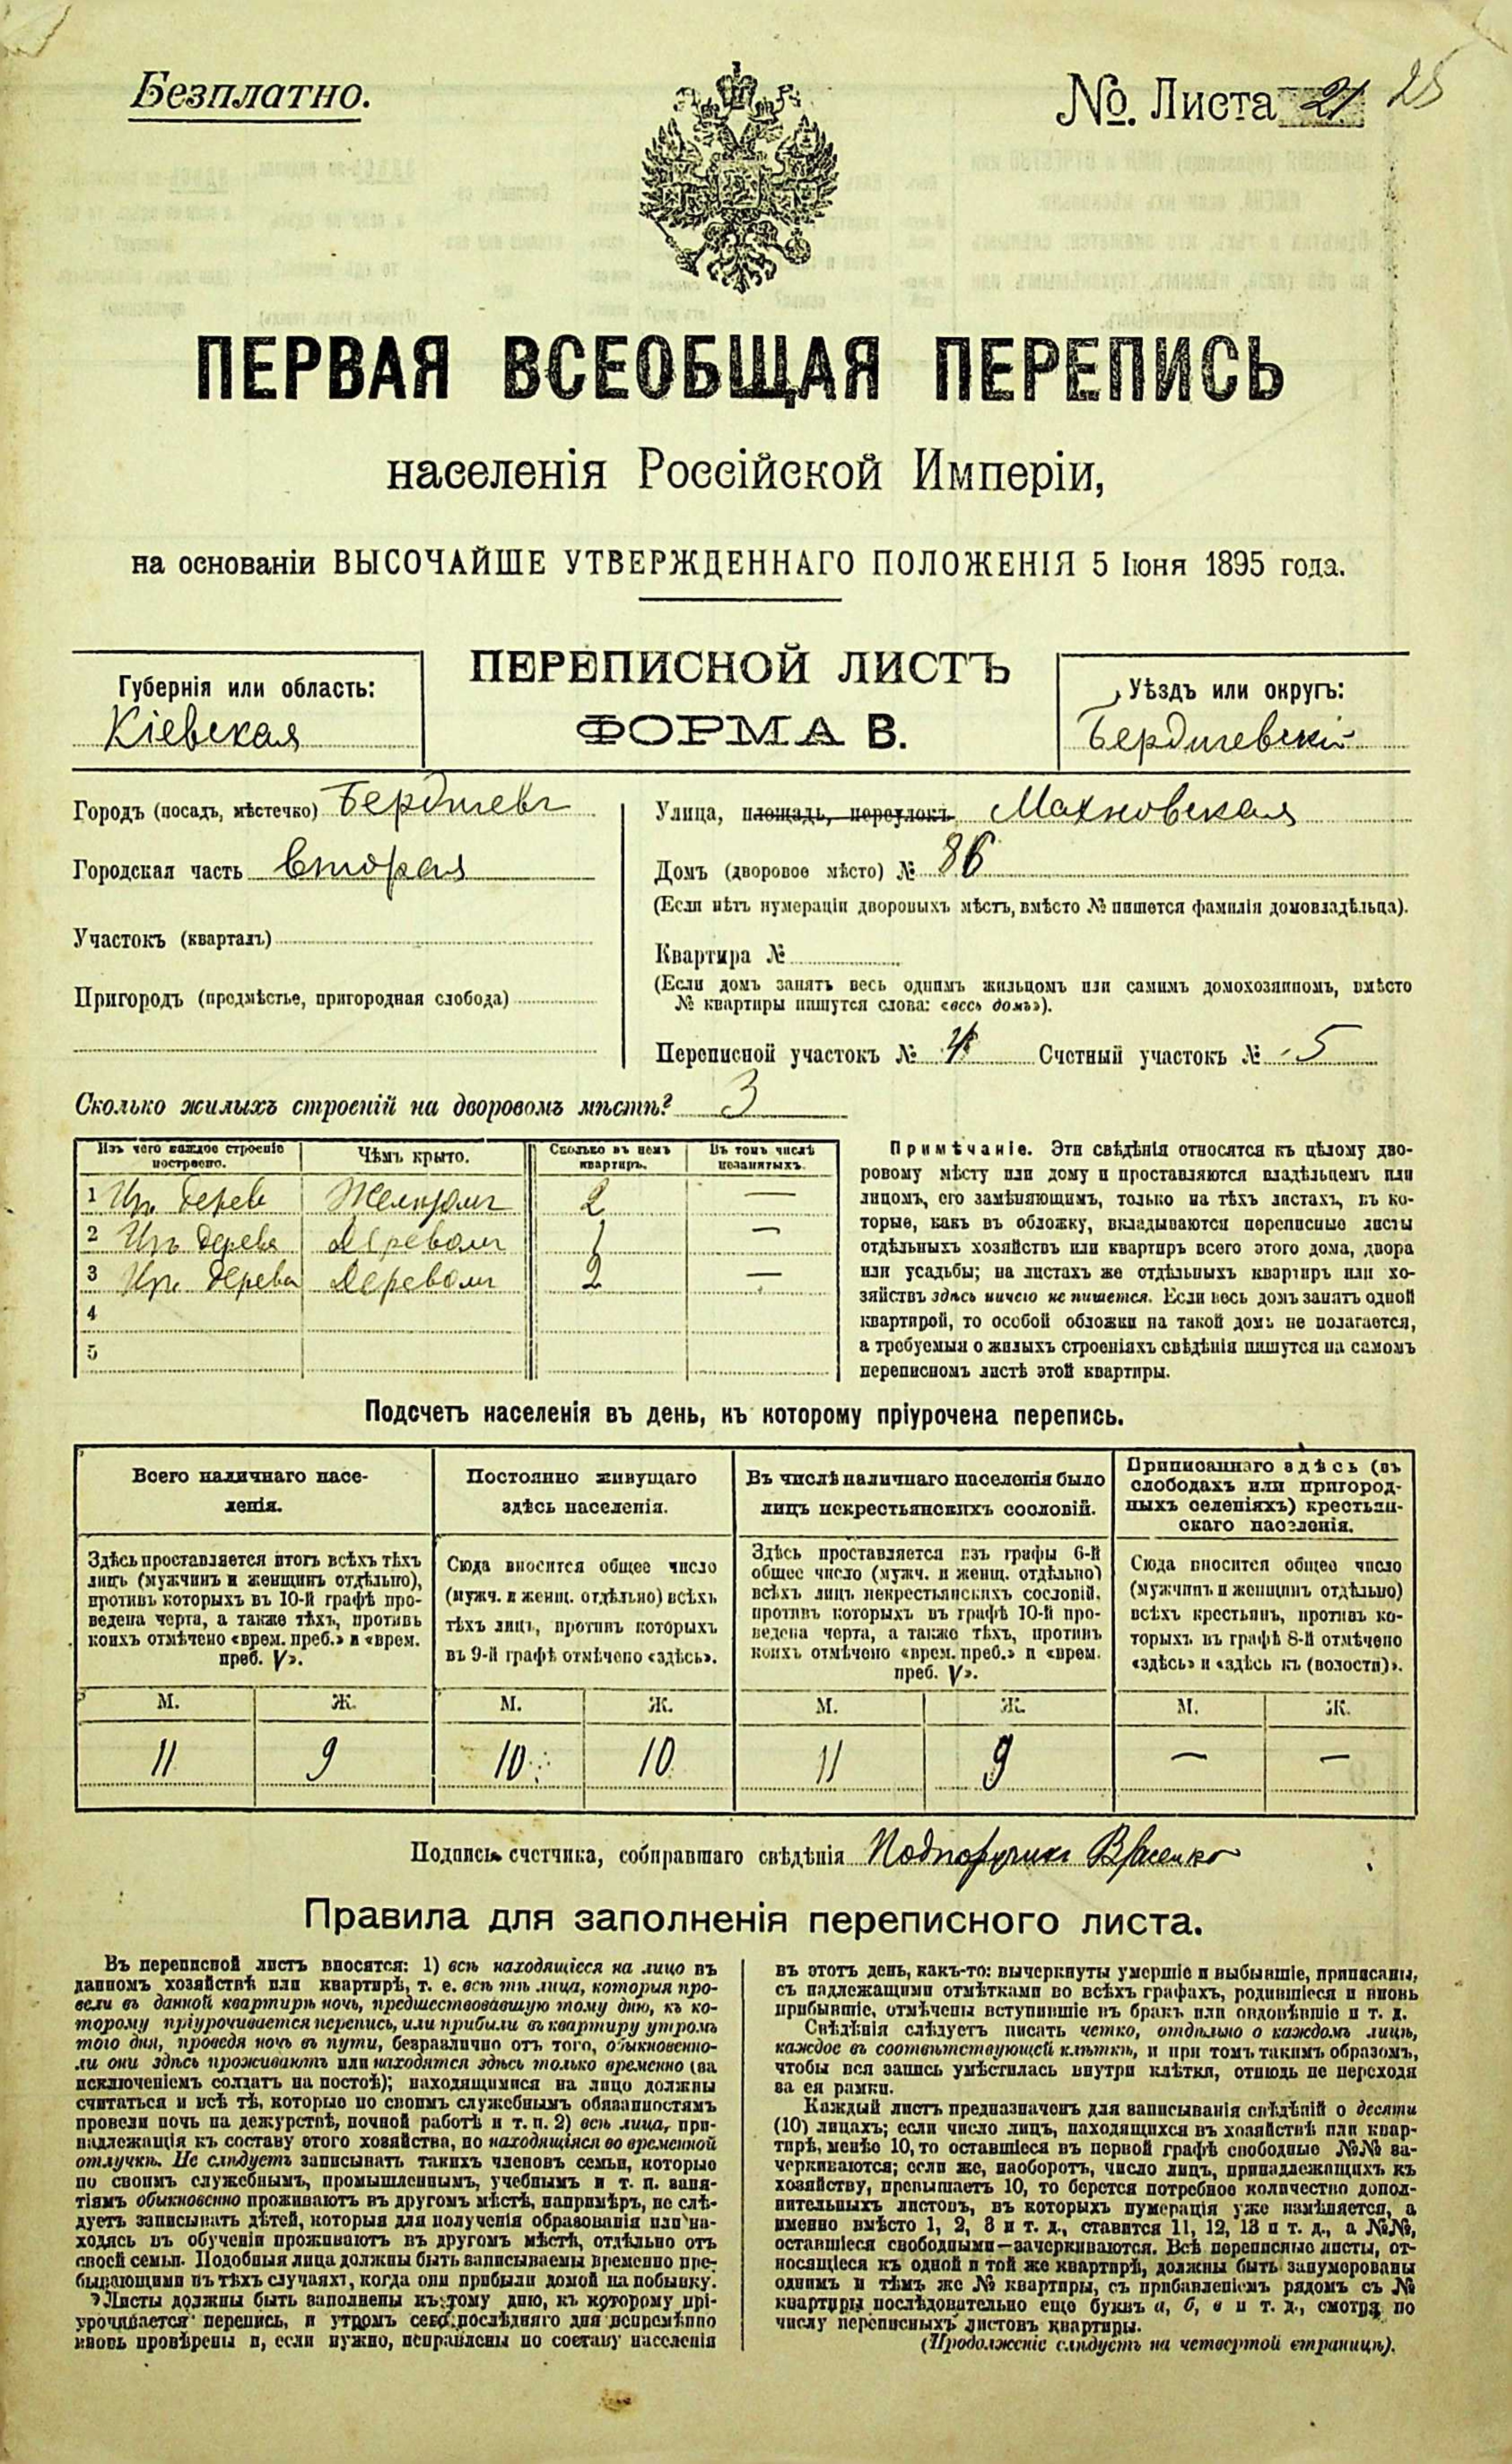 Безплатно.
№. Листа 21 25
ПЕРВАЯ ВСЕОБЩАЯ ПЕРЕПИСЬ
населенія Россійской Имперіи,
на основаніи ВЫСОЧАЙШЕ УТВЕРЖДЕННАГО ПОЛОЖЕНІЯ 5 Іюня 1895 года.
Губернія или область:
Кіевская
ПЕРЕПИСНОЙ ЛИСТЪ
ФОРМА В.
Уѣздъ или округъ:
Бердичевскій
Городъ (посадъ, мѣстечко) Бердичевъ
Городская часть вторая
Участокъ (кварталъ)
Пригородъ (предмѣстье, пригородная слобода)
Улица, площадь, переулокъ Махновская
Домъ (дворовое мѣсто) № 86
(Если нѣтъ нумераціи дворовыхъ мѣстъ, вмѣсто № пишется фамилія домовладѣльца).
Квартира №
(Если домъ занятъ весь однимъ жильцомъ или самимъ домохозяиномъ, вмѣсто
№ квартиры пишутся слова: «весь домъ»).
Переписной участокъ № 4 Счетный участокъ № 5
Сколько жилыхъ строеній на дворовомъ мѣстѣ? 3
Изъ чего каждое строеніе
построено.
Чѣмъ крыто.
Сколько въ немъ
квартиръ.
Въ томъ числѣ
незанятыхъ.
1 Изъ дерев Желѣзомъ 2 —
2 Изъ дерева Деревомъ 1 —
3 Изъ дерева Деревомъ 2 —
4
5
Примѣчаніе. Эти свѣдѣнія относятся къ цѣлому дво-
ровому мѣсту или дому и проставляются владѣльцемъ или
лицомъ, его замѣняющимъ, только на тѣхъ листахъ, въ ко-
торые, какъ въ обложку, вкладываются переписные листы
отдѣльныхъ хозяйствъ или квартиръ всего этого дома, двора
или усадьбы; на листахъ же отдѣльныхъ квартиръ или хо-
зяйствъ здѣсь ничего не пишется. Если весь домъ занятъ одной
квартирой, то особой обложки на такой домъ не полагается,
а требуемыя о жилыхъ строеніяхъ свѣдѣнія пишутся на самомъ
переписномъ листѣ этой квартиры.
Подсчетъ населенія въ день, къ которому пріурочена перепись.
Всего наличнаго насе-
ленія.
Здѣсь проставляется итогъ всѣхъ тѣхъ
лицъ (мужчинъ и женщинъ отдѣльно),
противъ которыхъ въ 10-й графѣ про-
ведена черта, а также тѣхъ, противъ
коихъ отмѣчено «врем. преб.» и «врем.
преб. V».
М. Ж.
11 9
Постоянно живущаго
здѣсь населенія.
Сюда вносится общее число
(мужч. и женщ. отдѣльно) всѣхъ
тѣхъ лицъ, противъ которыхъ
въ 9-й графѣ отмѣчено «здѣсь».
М. Ж.
10 10
Въ числѣ наличнаго населенія было
лицъ некрестьянскихъ сословій.
Здѣсь проставляется изъ графы 6-й
общее число (мужч. и женщ. отдѣльно)
всѣхъ лицъ некрестьянскихъ сословій,
противъ которыхъ въ графѣ 10-й про-
ведена черта, а также тѣхъ, противъ
коихъ отмѣчено «врем. преб.» и «врем.
преб. V».
М. Ж.
11 9
Приписаннаго здѣсь (въ
слободахъ или пригород-
ныхъ селеніяхъ) крестьян-
скаго населенія.
Сюда вносится общее число
(мужчинъ и женщинъ отдѣльно)
всѣхъ крестьянъ, противъ ко-
торыхъ въ графѣ 8-й отмѣчено
«здѣсь» и «здѣсь къ (волости)».
М. Ж.
— —
Подпись счетчика, собиравшаго свѣдѣнія Подпоручикъ
Правила для заполненія переписного листа.
Въ переписной листъ вносятся: 1) всѣ находящіеся на лицо въ
данномъ хозяйствѣ или квартирѣ, т. е. всѣ тѣ лица, которыя про-
вели въ данной квартирѣ ночь, предшествовавшую тому дню, къ ко-
торому пріурочивается перепись, или прибыли въ квартиру утромъ
того дня, проведя ночь въ пути, безразлично отъ того, обыкновенно-
ли они здѣсь проживаютъ или находятся здѣсь только временно (за
исключеніемъ солдатъ на постоѣ); находящимися на лицо должны
считаться и всѣ тѣ, которые по своимъ служебнымъ обязанностямъ
провели ночь на дежурствѣ, ночной работѣ и т. п. 2) всѣ лица, при-
надлежащія къ составу этого хозяйства, но находящіяся во временной
отлучкѣ. Не слѣдуетъ записывать такихъ членовъ семьи, которые
по своимъ служебнымъ, промышленнымъ, учебнымъ и т. п. заня-
тіямъ обыкновенно проживаютъ въ другомъ мѣстѣ, напримѣръ, не слѣ-
дуетъ записывать дѣтей, которыя для полученія образованія или на-
ходясь въ обученіи проживаютъ въ другомъ мѣстѣ, отдѣльно отъ
своей семьи. Подобныя лица должны быть записываемы временно пре-
бывающими въ тѣхъ случаяхъ, когда они прибыли домой на побывку.
Листы должны быть заполнены къ тому дню, къ которому прі-
урочивается перепись, и утромъ сего послѣдняго дня непремѣнно
вновь провѣрены и, если нужно, исправлены по составу населенія
въ этотъ день, какъ-то: вычеркнуты умершіе и выбывшіе, приписаны,
съ надлежащими отмѣтками во всѣхъ графахъ, родившіеся и вновь
прибывшіе, отмѣчены вступившіе въ бракъ или овдовѣвшіе и т. д.
Свѣдѣнія слѣдуетъ писать четко, отдѣльно о каждомъ лицѣ,
каждое въ соотвѣтствующей клѣткѣ, и при томъ такимъ образомъ,
чтобы вся запись умѣстилась внутри клѣтки, отнюдь не переходя
за ея рамки.
Каждый листъ предназначенъ для записыванія свѣдѣній о десяти
(10) лицахъ; если число лицъ, находящихся въ хозяйствѣ или квар-
тирѣ, менѣе 10, то оставшіеся въ первой графѣ свободные №№ за-
черкиваются; если же, наоборотъ, число лицъ, принадлежащихъ къ
хозяйству, превышаетъ 10, то берется потребное количество допол-
нительныхъ листовъ, въ которыхъ нумерація уже измѣняется, а
именно вмѣсто 1, 2, 3 и т. д., ставится 11, 12, 13 и т. д., а №№,
оставшіеся свободными—зачеркиваются. Всѣ переписные листы, от-
носящіеся къ одной и той же квартирѣ, должны быть занумерованы
однимъ и тѣмъ же № квартиры, съ прибавленіемъ рядомъ съ №
квартиры послѣдовательно еще буквъ а, б, в и т. д., смотря по
числу переписныхъ листовъ квартиры.
(Продолженіе слѣдуетъ на четвертой страницѣ).